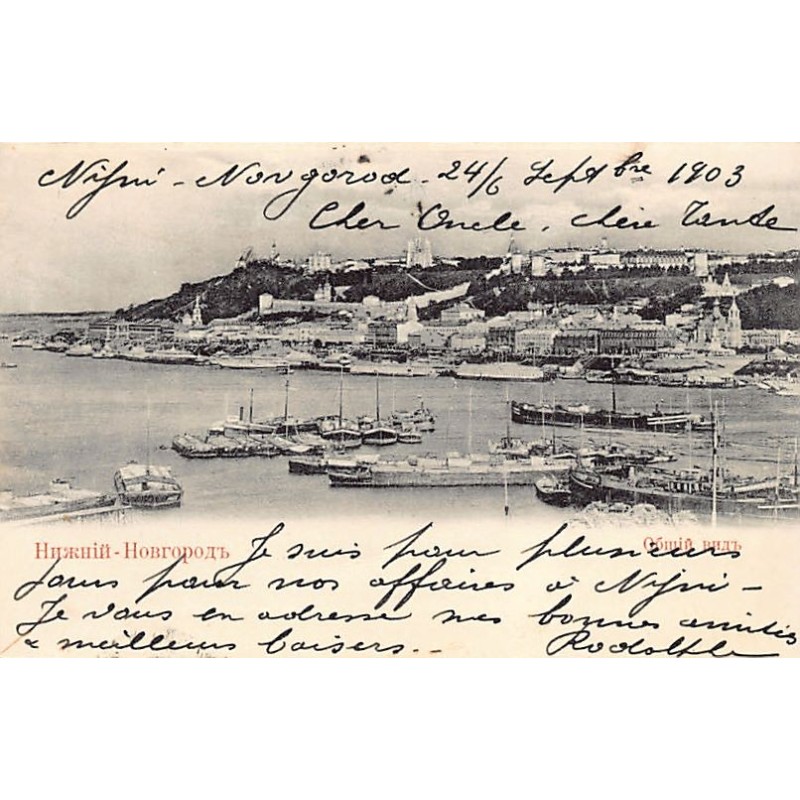 Nijni - Novgorod - 24/6 Septbre 1903
Cher Oncle, chère Tante
Нижній-Новгородъ
Общій видъ
Je suis pour plusieurs
jours pour nos affaires à Nijni -
Je vous en adresse mes bonnes amitiés
& meilleurs baisers. -
Rodolphe